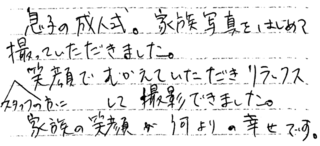 息子の成人式。家族写真をはじめて
撮っていただきました。
笑顔でむかえていただきリラックス
スタッフの方に
して撮影できました。
家族の笑顔が何よりの幸せです。